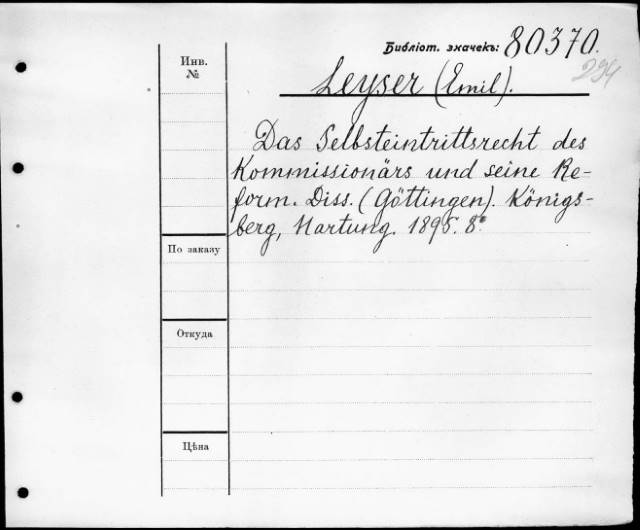 Библіот. значекъ: 80370.
294
Инв.
№
Leyser (Emil).
Das Selbsteintrittsrecht des
Kommissionärs und seine Re-
form. Diss. (Göttingen). Königs-
berg, Hartung. 1895. 8°
По заказу
Откуда
Цѣна